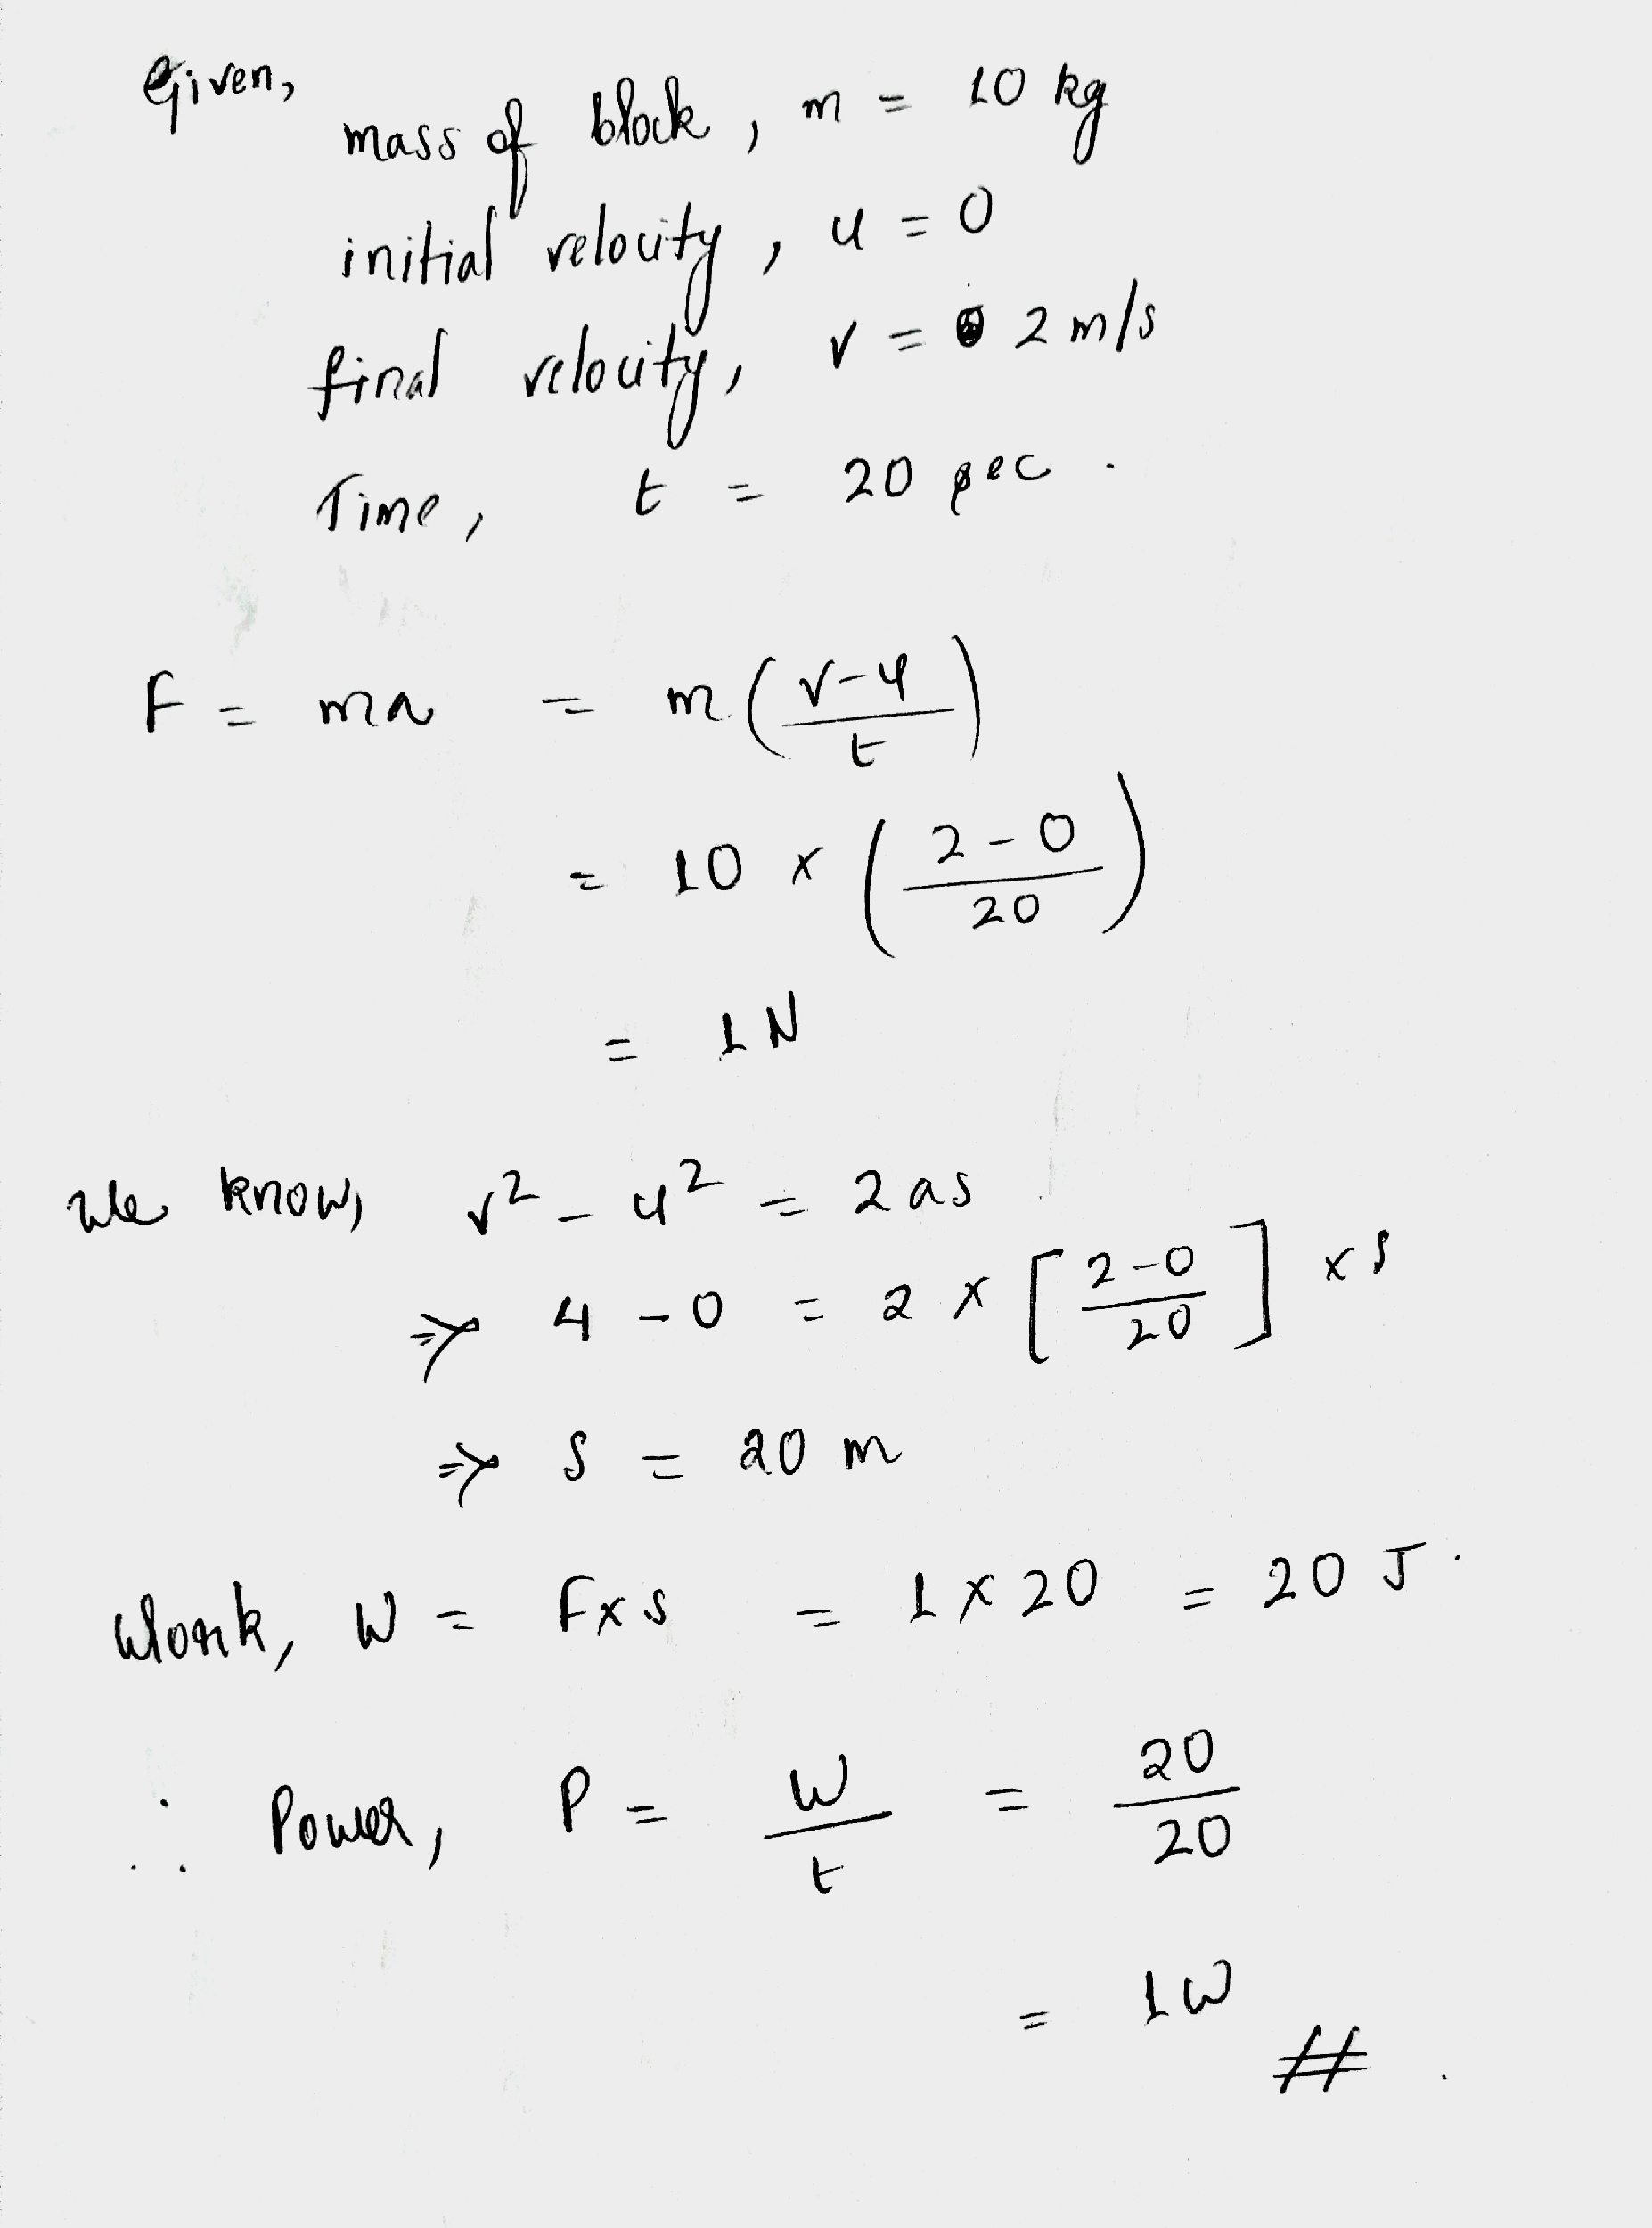 Given,
mass of block, m = 10 kg
initial velocity, u = 0
final velocity, v = 2 m/s
Time, t = 20 sec.
F = ma = m(v-u/t)
= 10 × (2-0/20)
= 1N
We know, v² - u² = 2as
⇒ 4 - 0 = 2 × [2-0/20] × s
⇒ s = 20 m
Work, W = F×s = 1×20 = 20 J.
∴ Power, P = W/t = 20/20
= 1W #.